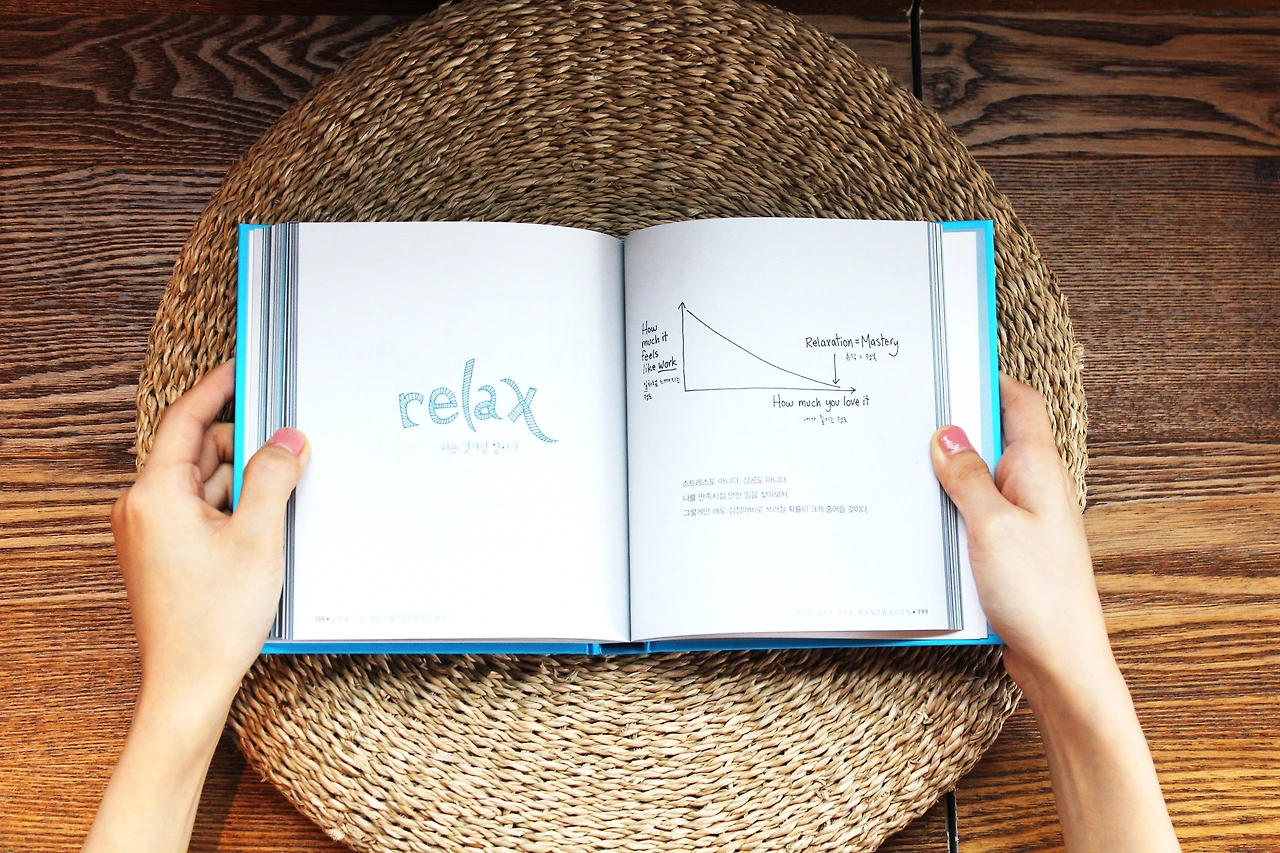 relax
198 • HOW TO BE INTERESTING
How
much it
feels
like work
Relaxation = Mastery
How much you love it
내가 즐기는 정도
스트레스도 아니다. 성공도 아니다.
나를 만족시킬 만한 일을 찾아보자.
그렇게만 해도 심장마비로 쓰러질 확률이 크게 줄어들 것이다.
HOP OFF THE BANDWAGON • 199